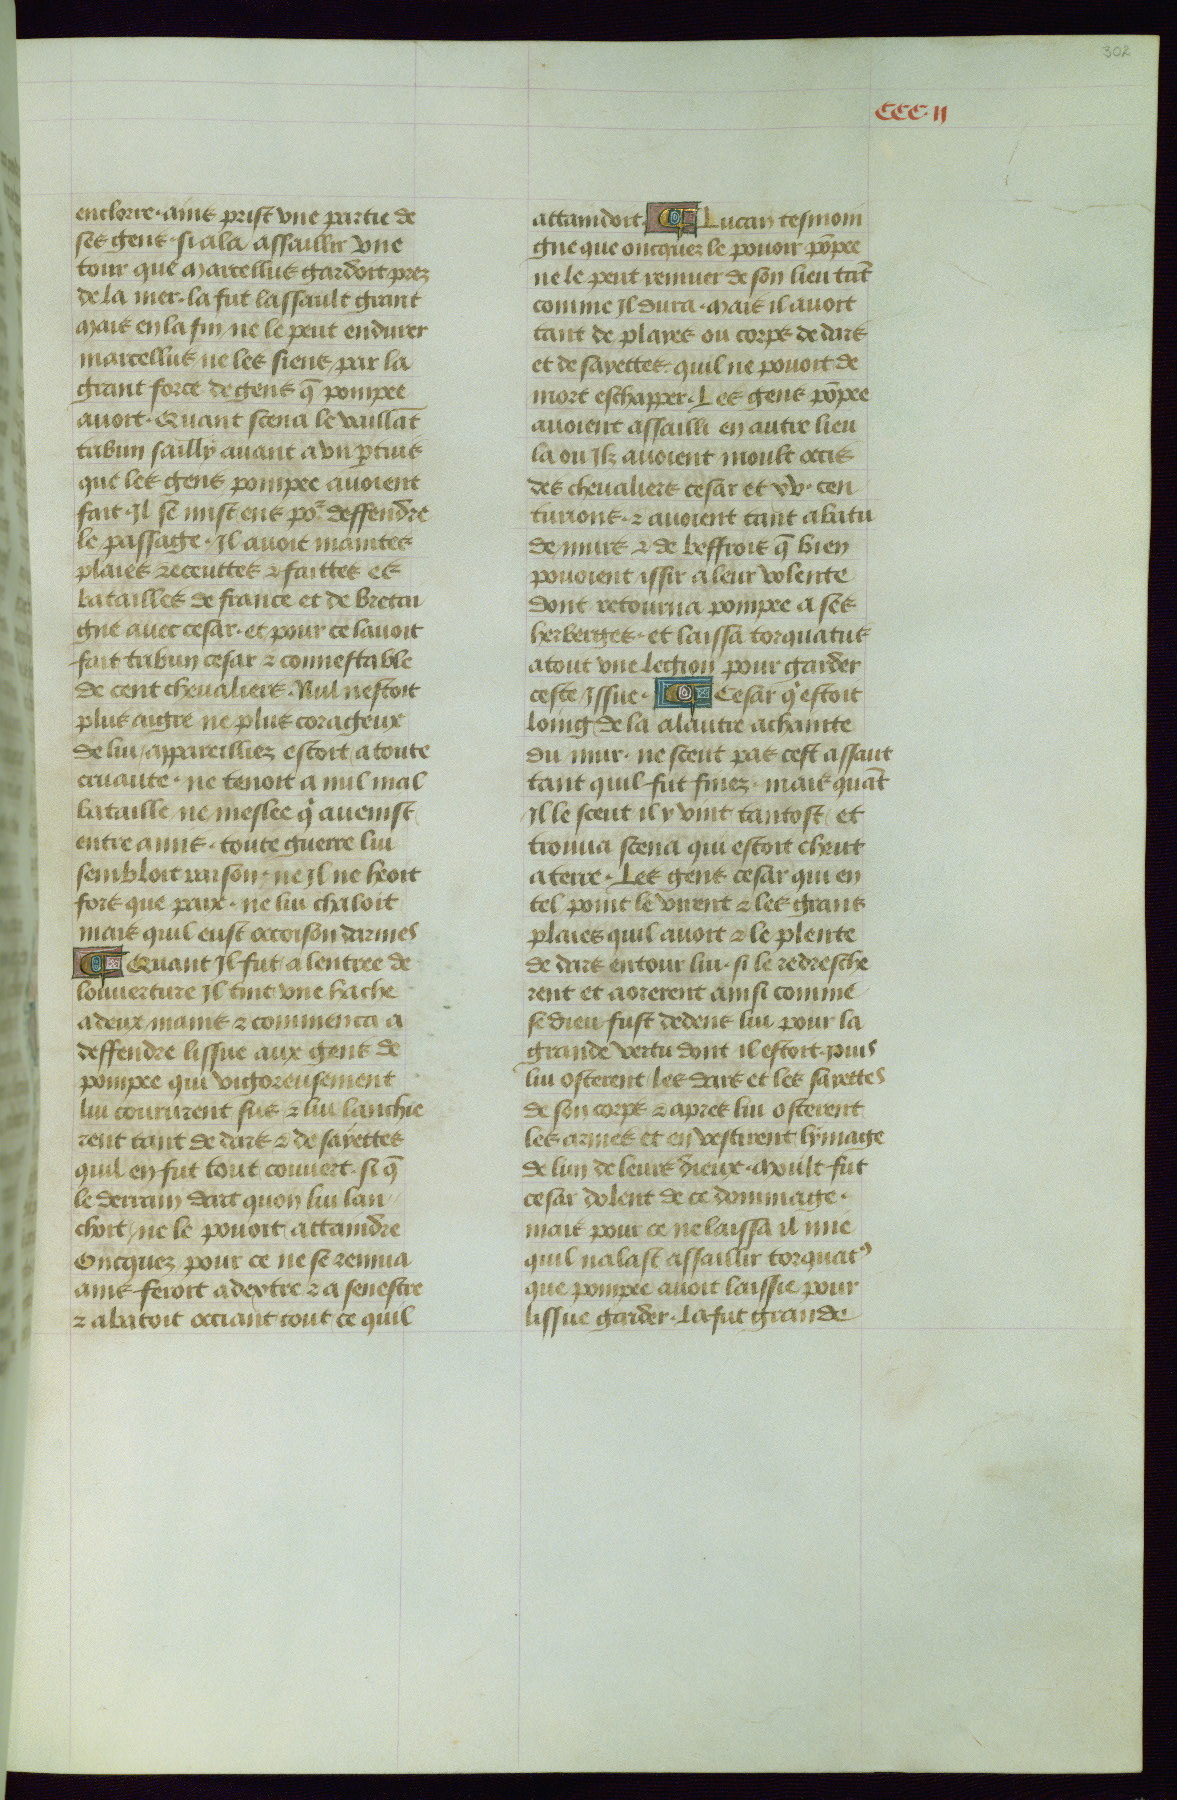 302
CCC·II
enclorre · ains prist vne partie de
ses gens · si ala assaillir vne
tour que marcellus gardoit prez
de la mer · la fut lassault grant
mais en la fin ne le peut endurer
marcellus ne les siens par la
grant force de gens q̄ pompee
auoit · Quant scena le vaillāt
tribun sailly auant a vn ptuis
que les gens pompee auoient
fait · Il se mist ens po᷑ deffendre
le passage · Il auoit maintes
plaies receuttes ⁊ faittes es
batailles de france et de bretai
gne auec cesar · et pour ce lauoit
fait tribun cesar ⁊ connestable
de cent cheualiers · Nul nestoit
plus aigre ne plus corageux
de lui appareilliez estoit a toute
cruaute · ne tenoit a nul mal
bataille ne meslee qͥ auenist
entre amis · toute guerre lui
sembloit raison · ne Il ne heoit
fors que paix · ne lui chaloit
mais quil eust occoison darmes
Quant Il fut a lentree de
louuerture Il tint vne hache
a deux mains ⁊ commenca a
deffendre lissue aux gens de
pompee qui vigoreusement
lui coururent sus ⁊ lui lanchie
rent tant de dars ⁊ de sayettes
quil en fut tout couuert · si q̄
le derrain dart quon lui lan
choit ne le pouoit attaindre
Oncquez pour ce ne se remua
ains feroit a dextre ⁊ a senestre
⁊ abatoit occiant tout ce quil
attaindoit · Lucan tesmoin
gne que oncquez le pouoir pōpee
ne le peut remuer de son lieu tāt
comme Il dura · mais il auoit
tant de playes ou corps de dars
et de sayettes · quil ne pouoit de
mort eschapper · Les gens pōpee
auoient assailli en autre lieu
la ou Ilz auoient moult occis
des cheualiers cesar et xv · cen
turions · ⁊ auoient tant abatu
de murs ⁊ de beffrois q̄ bien
pouoient issir a leur volente
dont retourna pompee a ses
herberges · et laissa torquatus
atout vne legion pour garder
ceste Issue · Cesar qͥ estoit
loing de la alautre achainte
du mur · ne sceut pas cest assaut
tant quil fut finez · mais quāt
Il le sceut il y vint tantost et
trouua scena qui estoit cheut
a terre · Les gens cesar qui en
tel point le virent ⁊ les grans
plaies quil auoit ⁊ le plente
de dars entour lui · si le redresche
rent et aorerent ainsi comme
se dieu fust dedens lui pour la
grande vertu dont il estoit · puis
lui osterent les dars et les sayettes
de son corps ⁊ apres lui osterent
les armes et en vestirent lymage
de lun de leurs dieux · Moult fut
cesar dolent de ce dommage ·
mais pour ce ne laissa il mie
quil nalast assaillir torquatꝰ
que pompee auoit laissie pour
lissue garder · La fut grande